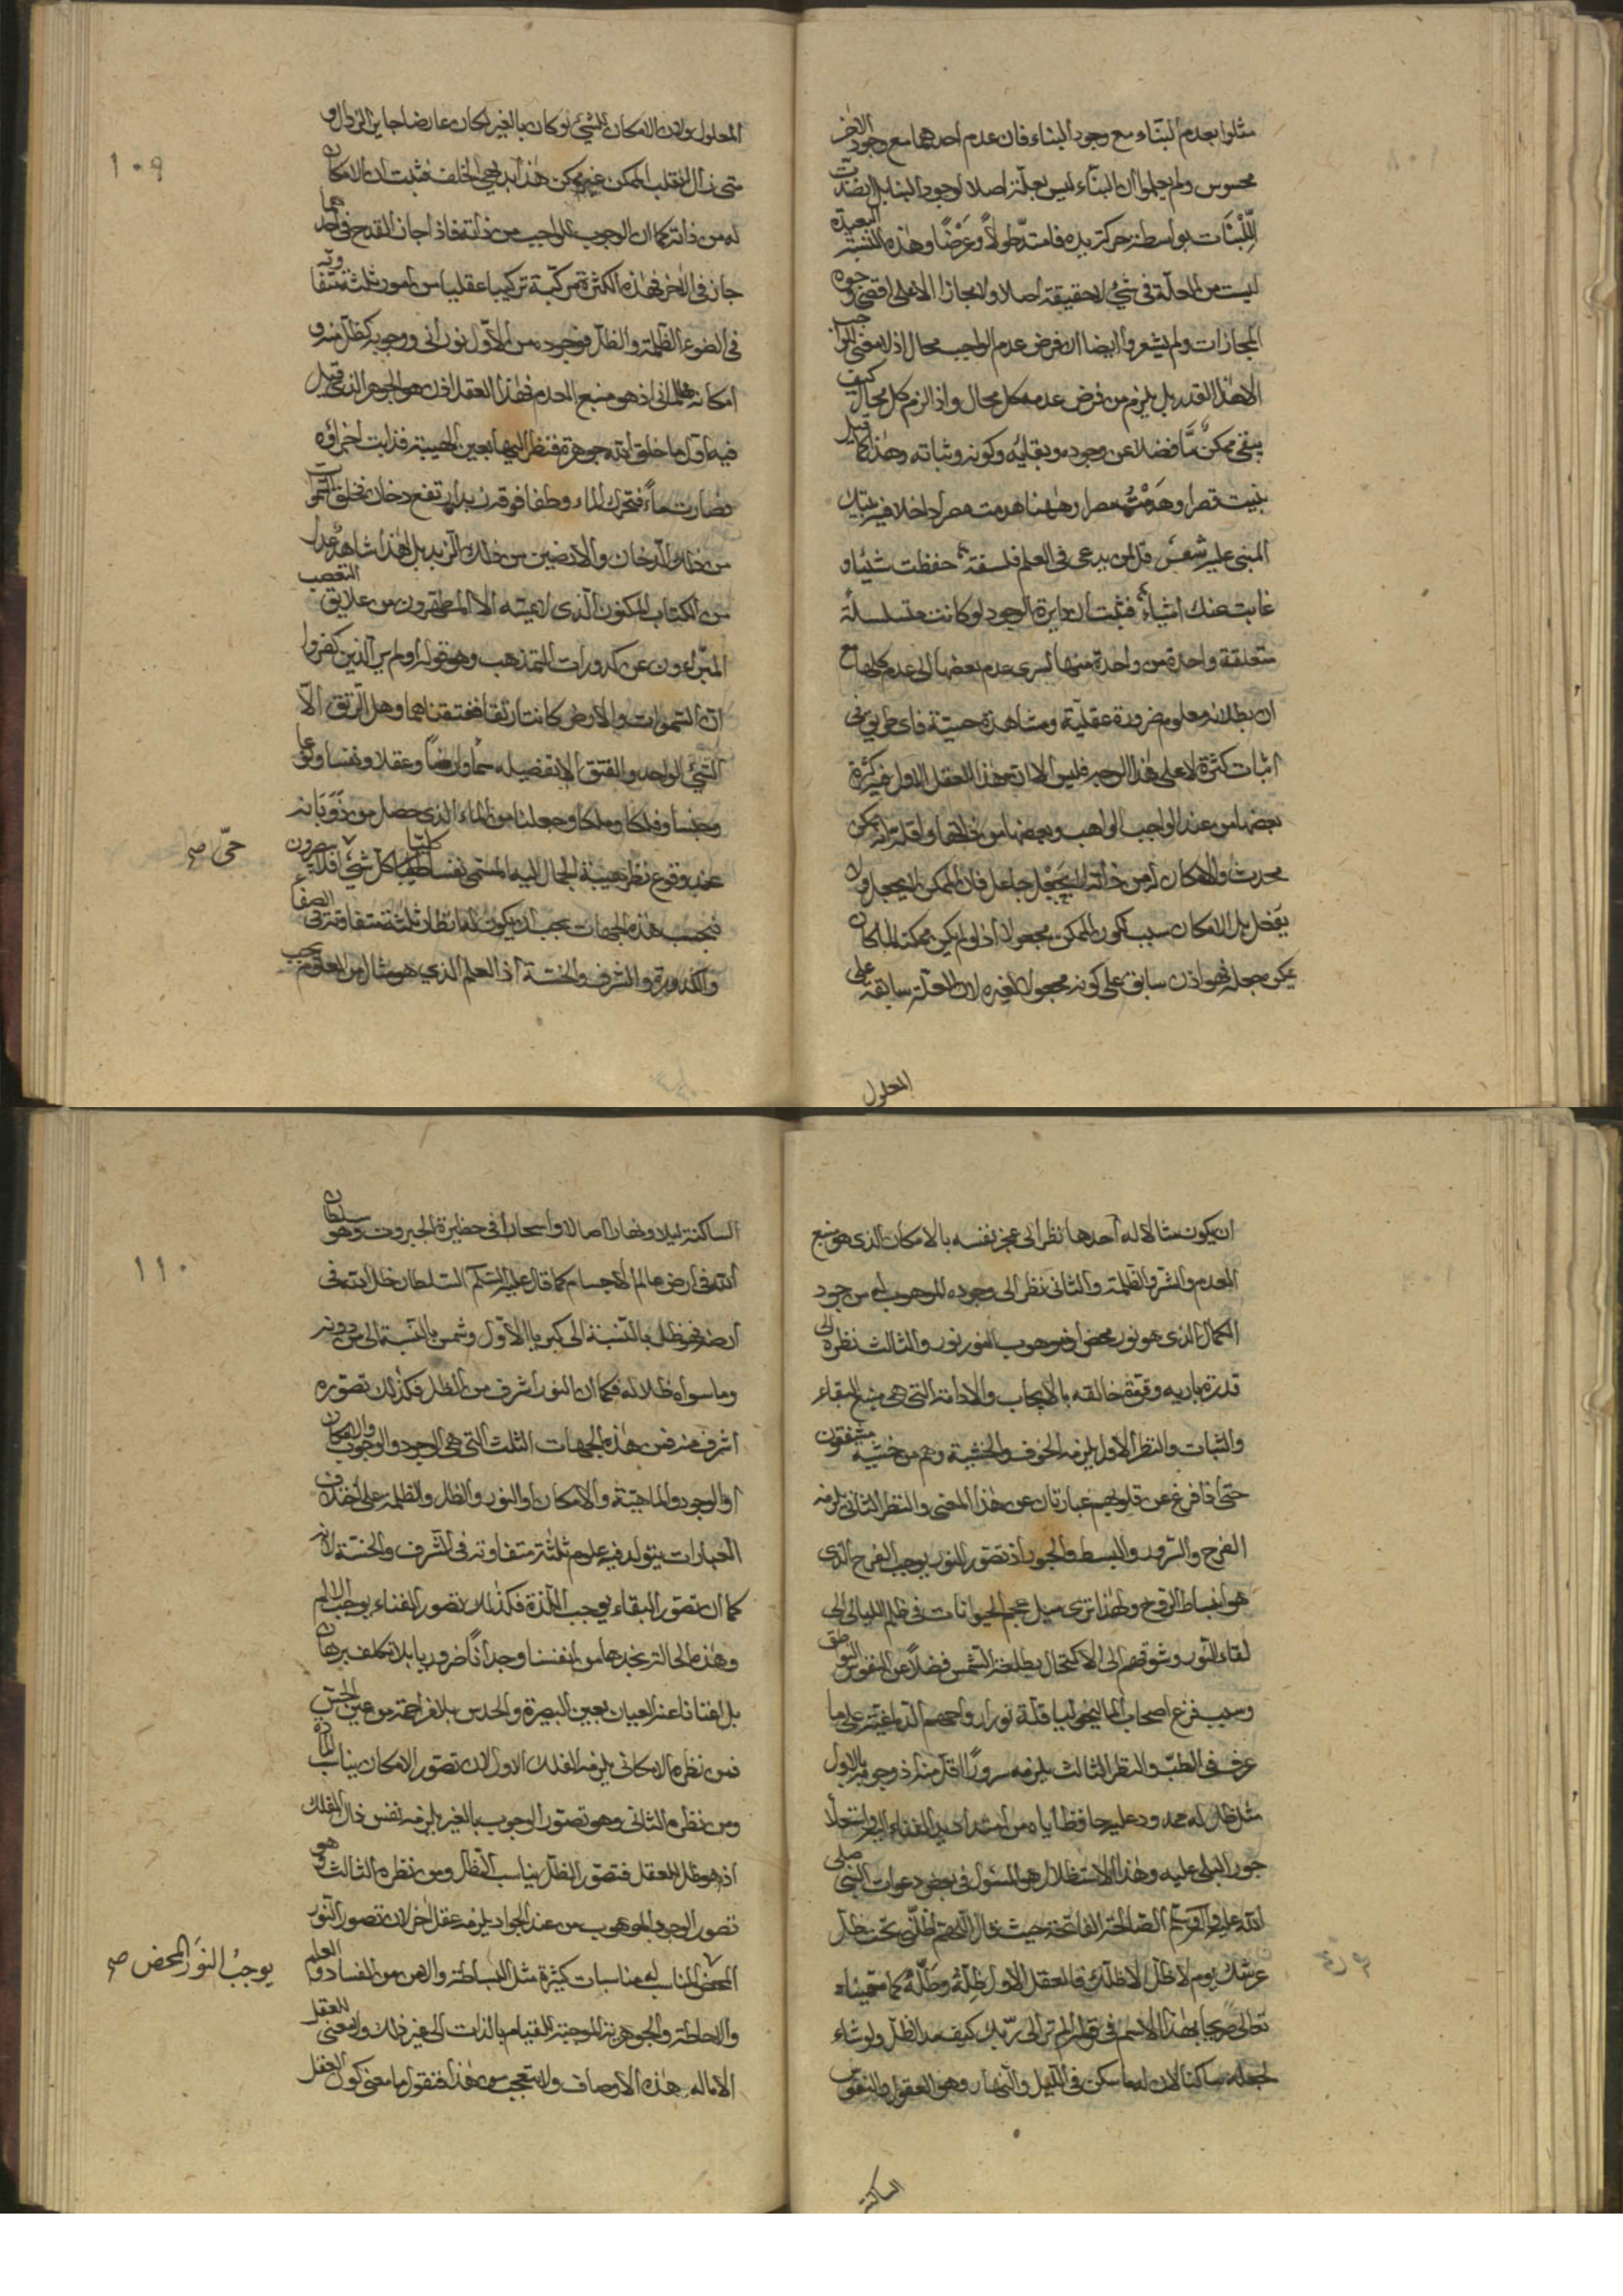 مثلوا بعدم البناء مع وجود البناء فان عدم احدهما مع وجود الاخر
محسوس ولم يعلموا ان البناء ليس بعلة اصلا لوجود البناء بل لنضد
اللبنات بواسطة حركة يده فامتد طولا وعرضا وهذه النسبة البعيدة
ليست من العلة في شئ لا حقيقة اصلا ولا مجازا الا على اقصى وجوه
المجازات ولم يشعروا ايضا ان فرض عدم الواجب محال اذ لا معنى للواجب
الا هذا القدر بل يلزم من فرض عدمه كل محال واذا لزم كل محال كيف
يبقى ممكن ما فضلا عن وجوده وبقائه وكونه وثباته وهذا كما قيل
بنيت قصرا وهدمت مصرا وههنا هدمت مصرا داخلا فيه بيتك
المبنى عليه شعر قل لمن يدعى في العلم فلسفة حفظت شيئا و
غابت عنك اشياء فثبت ان دايرة الوجود لو كانت متسلسلة
متعلقة واحدة من واحدة منها لسرى عدم بعضها الى عدم كلها مع
ان بطلانه معلوم ضرورة عقلية ومشاهدة حسية فاى طريق في
اثبات كثرة لا على هذا الوجه فليس الا ان هذا العقل الاول فيه كثرة
بعضها من عند الواجب الواهب وبعضها من ذاتها واقله انه ممكن
محدث والامكان له من ذاته لا بجعل جاعل فان الممكن لا يجعل ولا
يفعل بل الامكان سبب لكون الممكن مجعولا اذ لو لم يكن ممكنا لما كان
يمكن جعله فهو اذن سابق على كونه مجعولا لغيره لان العلة سابقة على
المعلول
١٠٩
المعلول ولان الامكان للشئ لو كان بالغير لكان عارضا جايز الزوال و
متى زال انقلب الممكن غير ممكن هذا بديهي الخلف فثبت ان الامكان
له من ذاته كما ان الوجوب للواجب من ذاته فاذا جاز القدح في احدهما
جاز في الاخر فهذه الكثرة مركبة تركيبا عقليا من امور ثلثة متفاوتة
في الضوء والظلمة والظل فوجوده من الاول نوراني ووجوبه كظل منه و
امكانه ظلماني اذ هو منبع العدم فهذا العقل اذن هو الجوهر الذي قيل
فيه اول ما خلق الله جوهرة فنظر اليها بعين الهيبة فذابت اجزاؤه
فصارت ماء فتحرك الماء وطفا فوقه زبد وارتفع دخان فخلق السموات
من ذلك الدخان والارضين من ذلك الزبد بل لهذا شاهد عدل
من الكتاب المكنون الذي لا يمسه الا المطهرون من علايق التعصب
المبرؤون عن كدورات التمذهب وهو قوله اولم ير الذين كفروا
ان السموات والارض كانتا رتقا ففتقناهما وهل الرتق الا
الشئ الواحد والفتق الا تفصيله سماء وارضا وعقلا ونفسا ونوعا
وجنسا وفلكا وملكا وجعلنا من الماء الذي حصل من ذوبانه
عند وقوع نظر هيبة الجلال اليه المسمى نفسا كليا كل شئ افلا يبصرون
حي صح
فبحسب هذه الجهات يجب ان يكون له انظار ثلثة متفاوتة في الصفاء
والكدورة والشرف والخسة اذ العلم الذي هو مثال من المعلوم يجب
ان يكون مثالا له احدها نظر الى عجز نفسه بالامكان الذي هو منبع
العدم والشر والظلمة والثاني نظر الى وجوده الموهوب له من جود
الكمال الذي هو نور محض اذ موهوب النور نور والثالث نظره الى
قدرة باريه وقوة خالقه بالايجاب والادامة التي هي منبع البقاء
والثبات والنظر الاول يلزمه الخوف والخشية وهم من خشيته مشفقون
حتى اذا فزع عن قلوبهم عبارتان عن هذا المعنى والنظر الثاني يلزمه
الفرح والسرور والبسط والجود اذ تصور النور يوجب الفرح الذي
هو انبساط الروح ولهذا ترى ميل عجم الحيوانات في ظلم الليالي الى
لقاء النور وشوقهم الى الاكتحال بطلعة الشمس فضلا عن النفوس النواطق
وسبب فزع اصحاب الماليخوليا قلة نور ارواحهم الدماغية على ما
عرف في الطب والنظر الثالث يلزمه سرورا اقل منه اذ وجوبه بالاول
مثل ظل له ممدود عليه حافظا اياه من امتداد يد الفناء اليه واستيلاء
جور البلى عليه وهذا الاستظلال هو المسئول في بعض دعوات النبي صلى
الله عليه وآله وسلم الصالحة الفاتحة حيث قال اللهم اظلني تحت ظل
عرشك يوم لا ظل الا ظلك فالعقل الاول ظله وظله كما سميناه
تعالى صريحا بهذا الاسم في قوله الم تر الى ربك كيف مد الظل ولو شاء
لجعله ساكنا لان له ما سكن في الليل والنهار وهو العقول والنفوس
الساكنة
١١٠
الساكنة ليلا ونهارا اصالا واسحارا في حظيرة الجبروت وهو سلطان
الله في ارض عالم الاجسام كما قال عليه السلام السلطان ظل الله في
ارضه فهو ظل بالنسبة الى كبرياء الاول وشمس بالنسبة الى من دونه
وما سواه ظلاله فكما ان النور اشرف من الظل فكذلك تصوره
اشرف منه فمن هذه الجهات الثلث التي هي الوجود والوجوب والامكان
او الوجود والماهية والامكان او النور والظل والظلمة على اختلاف
العبارات يتولد فيه علوم ثلثة متفاوتة في الشرف والخسة لانه
كما ان تصور البقاء يوجب اللذة فكذلك تصور الفناء يوجب الالم
وهذه الحالة نجدها من انفسنا وجدانا ضروريا بلا تكلف برهان
بل اغنانا عنه العيان بعين البصيرة والحدس بلا مزاحمة من عين الحس
فمن نظره الامكاني يلزمه الفلك الاول لان تصور الامكان يناسب المادة
ومن نظره الثاني وهو تصور الوجوب بالغير يلزمه نفس ذلك الفلك
اذ هو ظل العقل فتصور الظل يناسب الظل ومن نظره الثالث وهو
تصور الوجود الموهوب من عند الجواد يلزمه عقل اخر لان تصور النور
المحض المناسب له مناسبات كثيرة مثل البساطة والامن من الفساد والعلم
يوجب النور المحض صح
والاحاطة والجوهرية الموجبة للقيام بالذات الى غير ذلك ولا معنى للعقل
الا ماله هذه الاوصاف ولا تتعجب من هذا فنقول ما معنى كون العقل